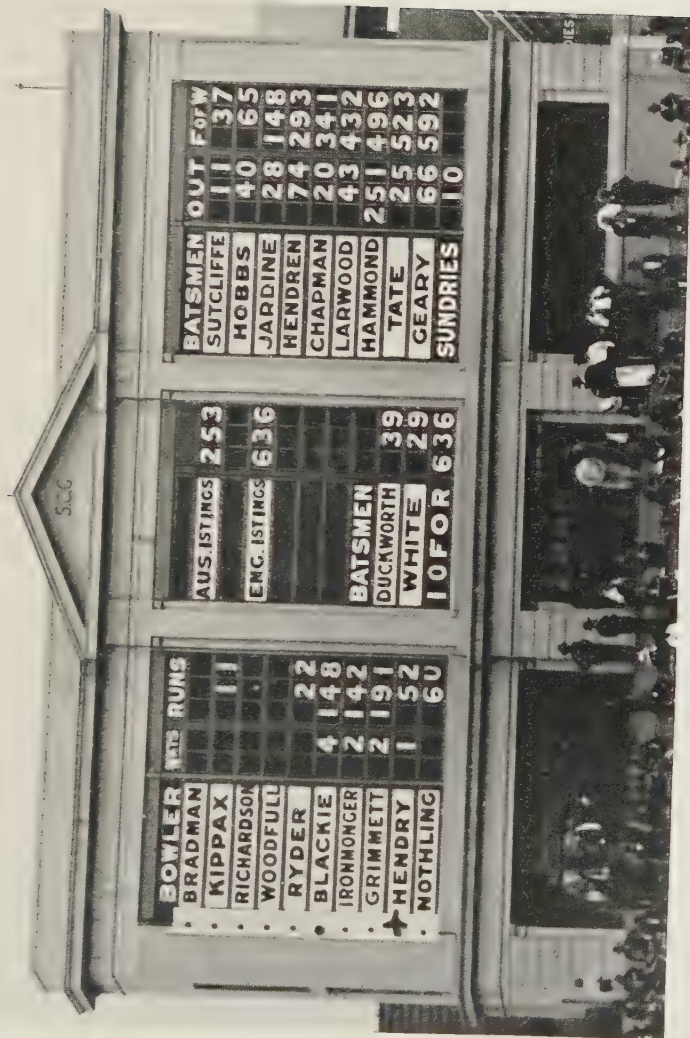 S.C.G
DIES
BOWLER RUNS
BRADMAN
KIPPAX 11
RICHARDSON
WOODFULL
RYDER 22
BLACKIE 4 148
IRONMONGER 2 142
GRIMMETT 2 191
HENDRY 1 52
NOTHLING 60
AUS. 1ST INGS 253
ENG. 1ST INGS 636
BATSMEN
DUCKWORTH 39
WHITE 29
10 FOR 636
BATSMEN OUT For W
SUTCLIFFE 11 37
HOBBS 40 65
JARDINE 28 148
HENDREN 74 293
CHAPMAN 20 341
LARWOOD 43 432
HAMMOND 251 496
TATE 25 523
GEARY 66 592
SUNDRIES 10